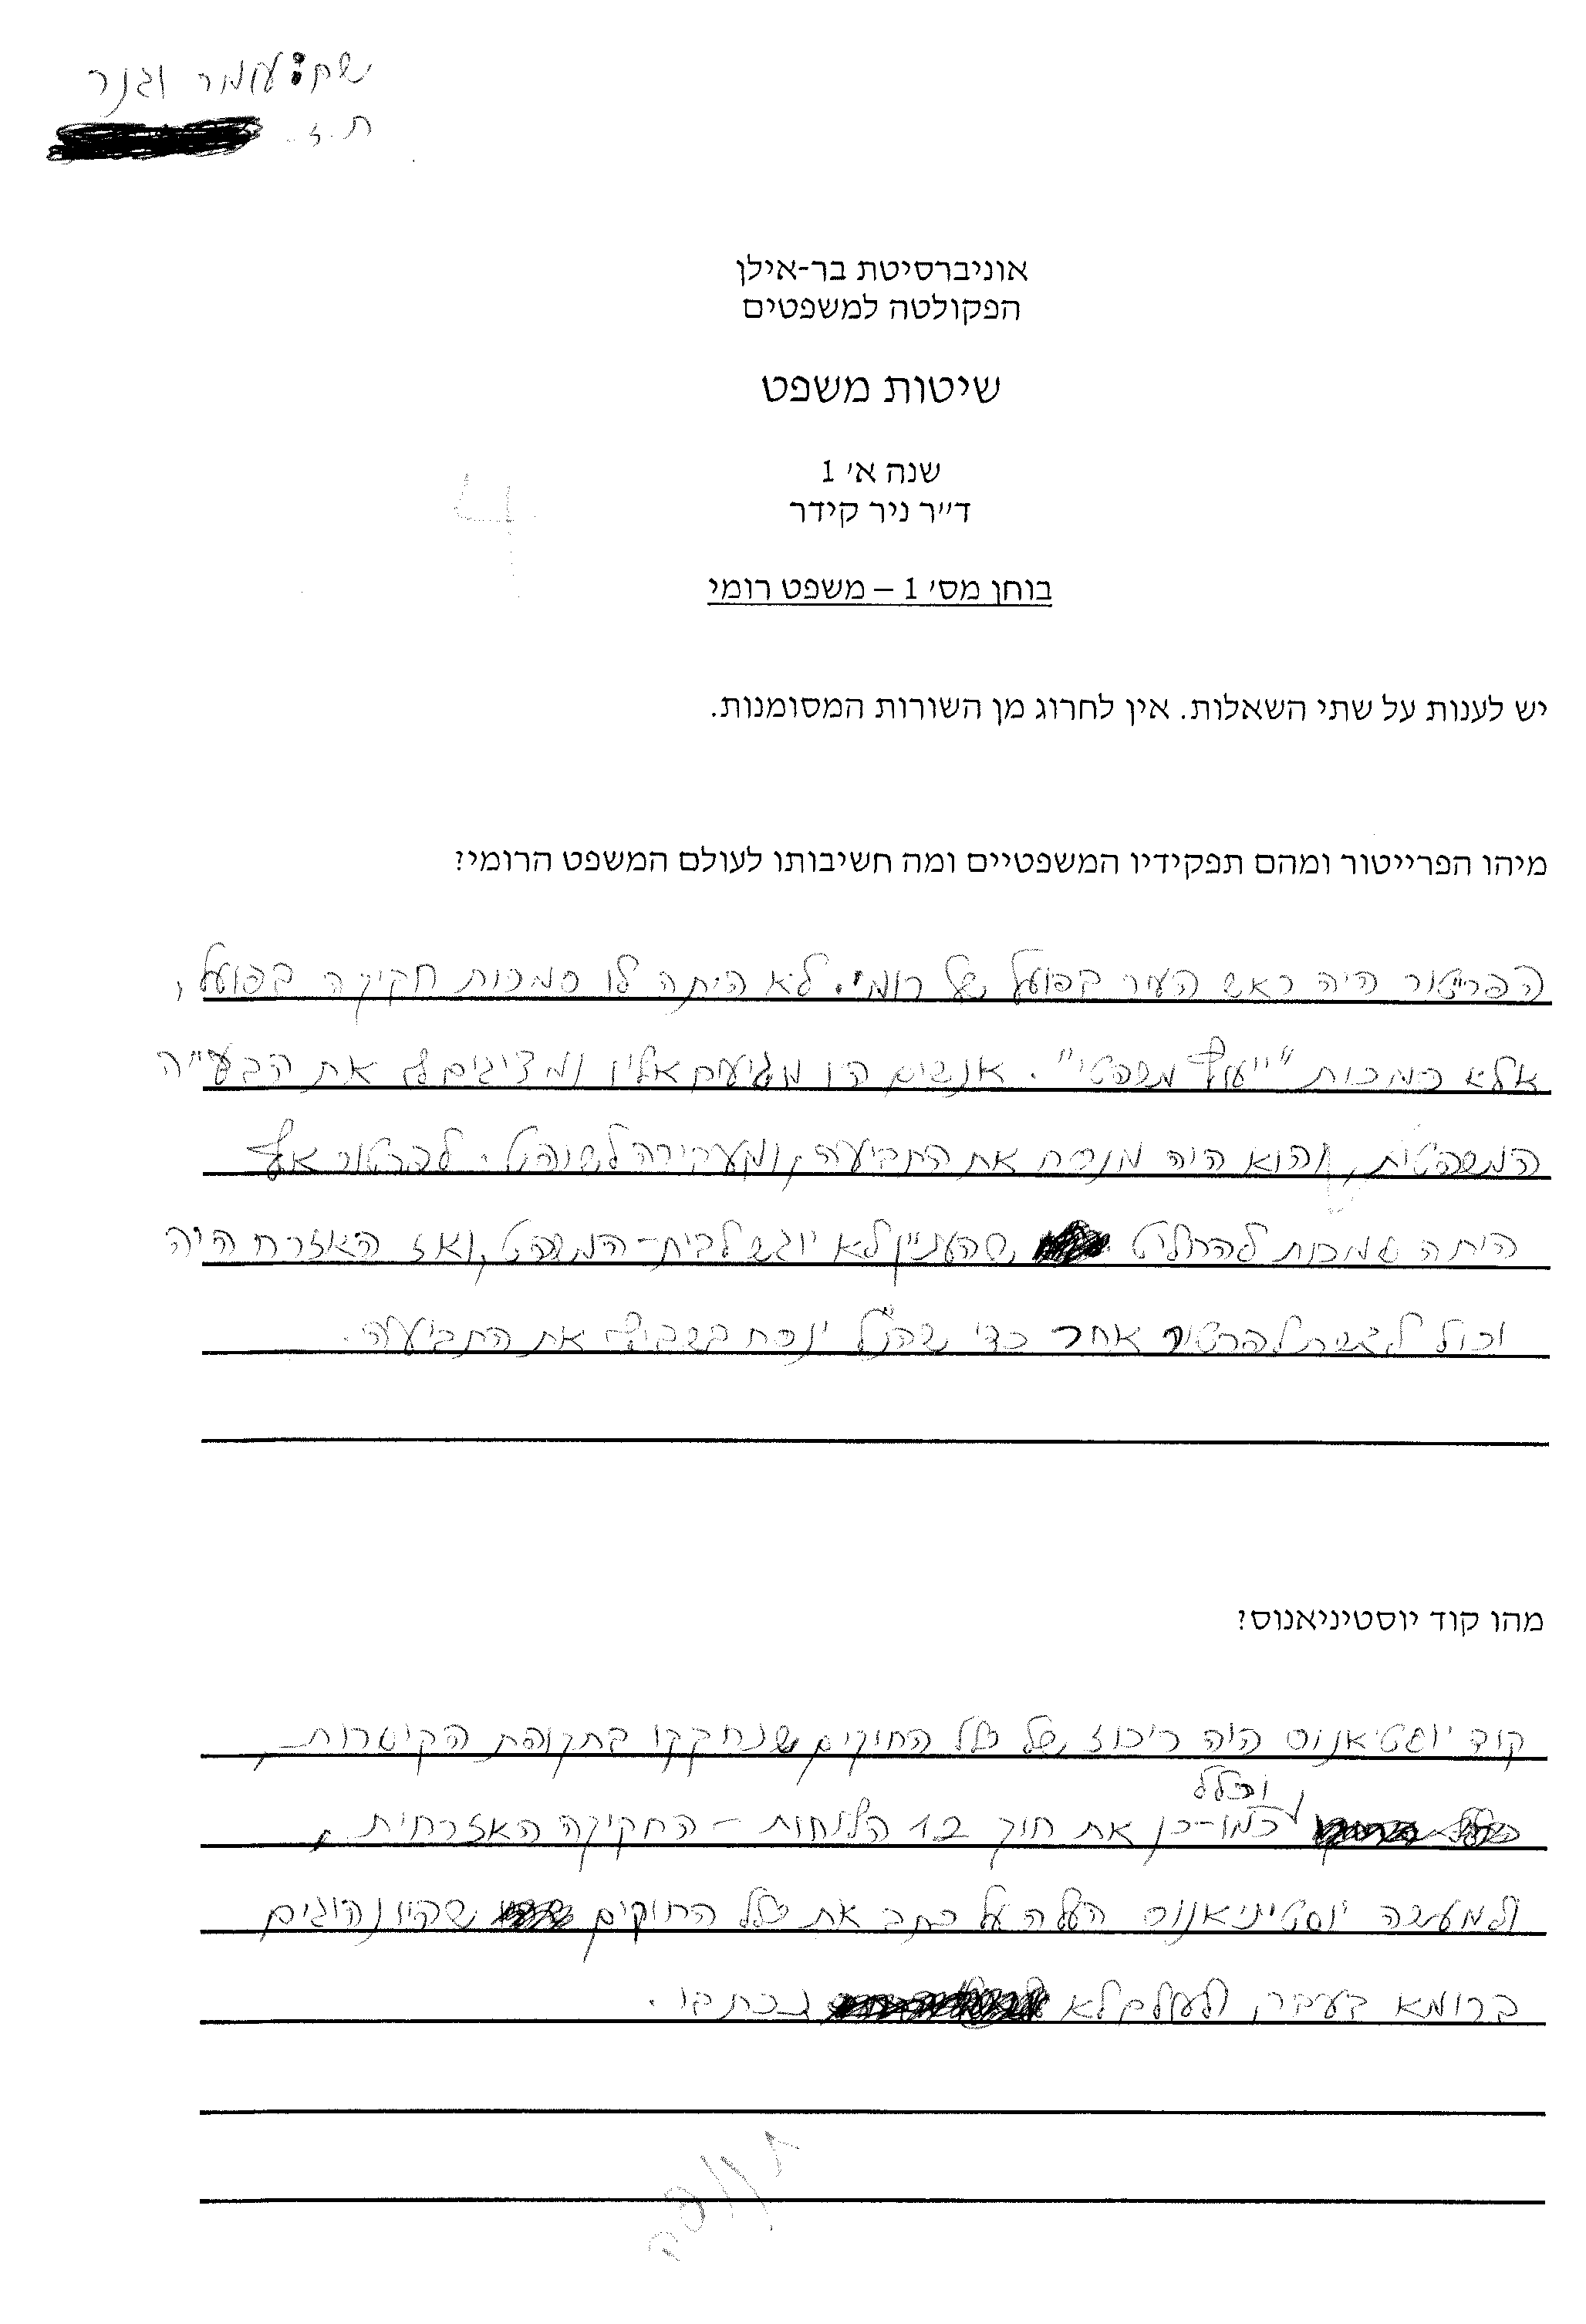 שם: עומר וגנר
ת.ז.
אוניברסיטת בר-אילן
הפקולטה למשפטים
שיטות משפט
שנה א׳ 1
ד״ר ניר קידר
4
בוחן מס׳ 1 – משפט רומי
יש לענות על שתי השאלות. אין לחרוג מן השורות המסומנות.
מיהו הפרייטור ומהם תפקידיו המשפטיים ומה חשיבותו לעולם המשפט הרומי?
הפרייטור היה ראש העיר בפועל של רומי. לא היתה לו סמכות חקיקה בפועל,
אלא סמכות "ייעוץ משפטי". אנשים היו מגיעים אליו ומציגים לו את הבעייה
המשפטית, והוא היה מנסח את התביעה ומעבירה לשופט. לפרטור אף
היתה סמכות להחליט שהעניין לא יוגש לבית-המשפט, ואז האזרח היה
יכול לגשת לפרטור אחר כדי שהנ"ל ינסח בשבילו את התביעה.
מהו קוד יוסטיניאנוס?
קוד יוסטיאנוס היה ריכוז של כלל החוקים שנחקקו בתקופת הקיסרות,
וכלל
כמו-כן את חוק 12 הלוחות – החקיקה האזרחית,
ולמעשה יוסטיניאנוס העלה על כתב את כלל החוקים שהיו נהוגים
ברומא בעבר, ולעולם לא נכתבו.